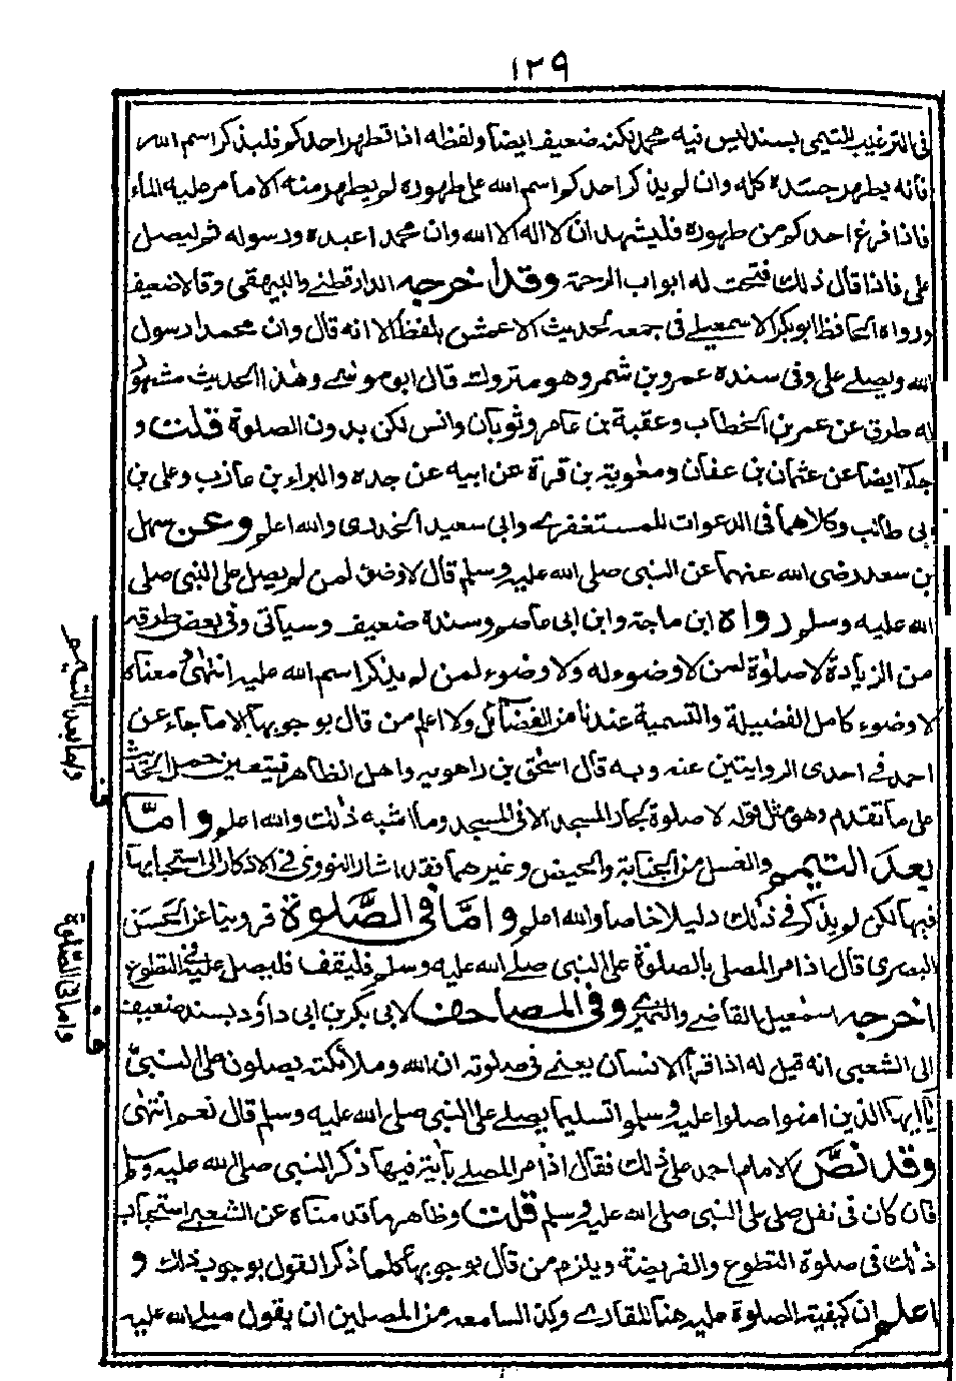 ١٢٩
فى الترغيب للتيمى بسند ليس فيه محمد لكنه ضعيف ايضا ولفظه اذا تطهر احدكم فليذكر اسم الله
فانه يطهر جسده كله وان لم يذكر احدكم اسم الله على طهوره لم يطهر منه الا ما مر عليه الماء
فاذا فرغ احدكم من طهوره فليشهد ان لا اله الا الله وان محمدا عبده ورسوله ثم ليصل
على فاذا قال ذلك فتحت له ابواب الرحمة وقد اخرجه الدارقطنى والبيهقى وقالا ضعيف
ورواه الحافظ ابو بكر الاسمعيلى فى جمعه لحديث الاعمش بلفظ الا انه قال وان محمدا رسول
الله ويصلى على وفى سنده عمرو بن شمر وهو متروك قال ابو موسى وهذا الحديث مشهور
له طرق عن عمر بن الخطاب وعقبة بن عامر وثوبان وانس لكن بدون الصلوة قلت و
جاء ايضا عن عثمان بن عفان ومعوية بن قرة عن ابيه عن جده والبراء بن عازب وعلى بن
ابى طالب وكلاهما فى الدعوات للمستغفرى وابى سعيد الخدرى والله اعلم وعن سهل
بن سعد رضى الله عنهما عن النبى صلى الله عليه وسلم قال لا وضوء لمن لم يصل على النبى صلى
الله عليه وسلم رواه ابن ماجة وابن ابى عاصم وسنده ضعيف وسيأتى وفى بعض طرقه
من الزيادة لا صلوة لمن لا وضوء له ولا وضوء لمن لم يذكر اسم الله عليه انتهى ومعناه
لا وضوء كامل الفضيلة والتسمية عندنا من الفضائل ولا اعلم من قال بوجوبها الا ما جاء عن
احمد فى احدى الروايتين عنه وبه قال اسحق بن راهويه واهل الظاهر فيتعين حمل الحديث
على ما تقدم وهو مثل قوله لا صلوة لجار المسجد الا فى المسجد وما اشبه ذلك والله اعلم واما
بعد التيمم والغسل من الجنابة والحيض وغيرهما فقد اشار النووى فى الاذكار الى استحبابها
فيها لكن لم يذكر فى ذلك دليلا خاصا والله اعلم واما فى الصلوة فروينا عن الحسن
البصرى قال اذا مر المصلى بالصلوة على النبى صلى الله عليه وسلم فليقف فليصل عليه فى التطوع
اخرجه اسمعيل القاضى والنميرى وفى المصاحف لابى بكر بن ابى داود بسند ضعيف
الى الشعبى انه قيل له اذا قرأ الانسان يعنى فى صلوته ان الله وملائكته يصلون على النبى
يا ايها الذين امنوا صلوا عليه وسلموا تسليما يصلى على النبى صلى الله عليه وسلم قال نعم انتهى
وقد نص الامام احمد على ذلك فقال اذا مر المصلى باية فيها ذكر النبى صلى الله عليه وسلم
فان كان فى نفل صلى على النبى صلى الله عليه وسلم قلت وظاهر ما قدمناه عن الشعبى استحباب
ذلك فى صلوة التطوع والفريضة ويلزم من قال بوجوبها كلما ذكر القول بوجوب ذلك و
اعلم ان كيفية الصلوة عليه هنا للقارى وكذا السامعه من المصلين ان يقول صلى الله عليه
واما بعد التيمم
واما فى الصلوة